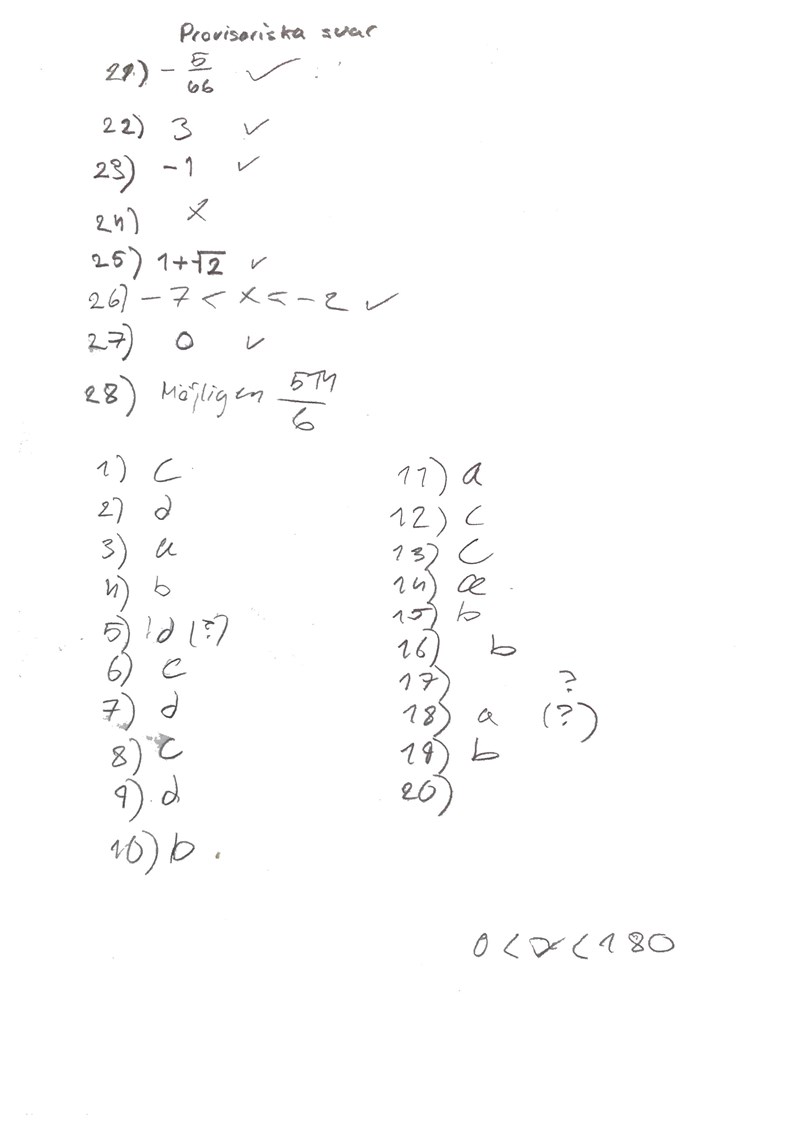 Provisoriska svar
21) - 5/66 ✓
22) 3 ✓
23) -1 ✓
24) x
25) 1+√2 ✓
26) -7 < x < -2 ✓
27) 0 ✓
28) Möjligen 5π/6
1) c
2) d
3) a
4) b
5) d (?)
6) c
7) d
8) c
9) d
10) b.
11) a
12) c
13) c
14) a
15) b
16) b
17) ?
18) a (?)
19) b
20)
0 < α < 180